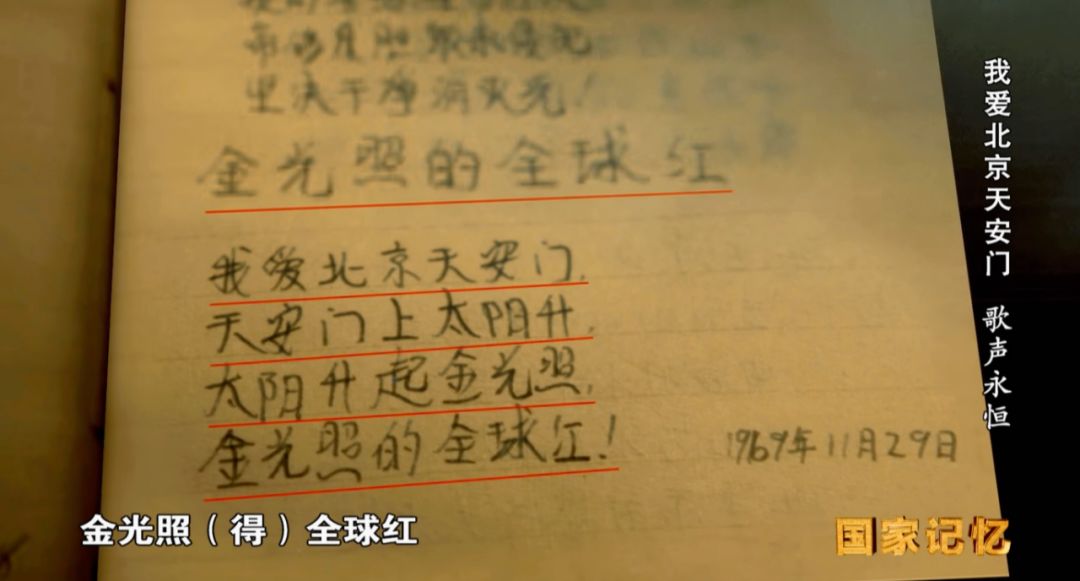 坚决干净消灭光！
金光照的全球红
我爱北京天安门，
天安门上太阳升，
太阳升起金光照，
金光照的全球红！
1969年11月29日
金光照（得）全球红
我爱北京天安门 歌声永恒
国家记忆